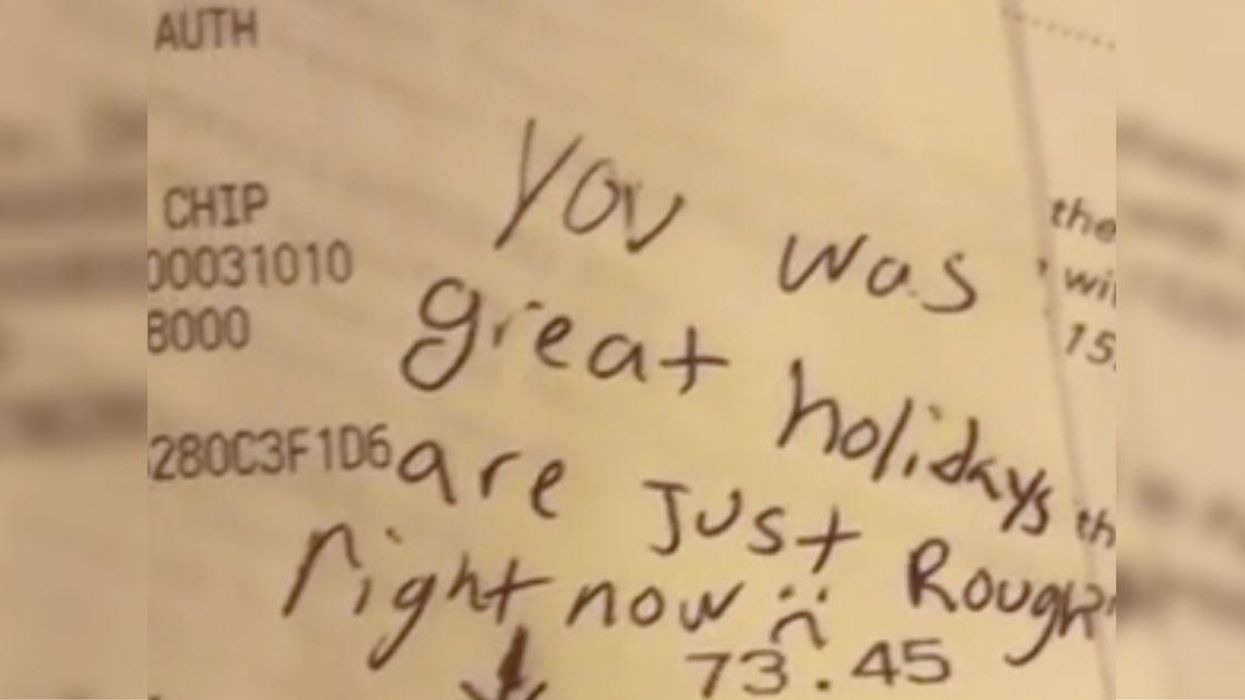 AUTH
you was
CHIP
the
00031010
great holidays
wi
8000
15
280C3F1D6
are Just Rough
th
right now :(
73.45